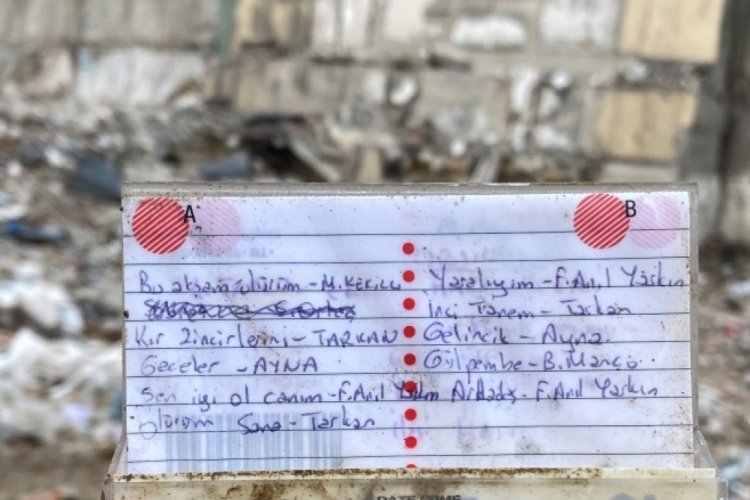 A B
Bu akşam ölürüm - M. KEKİLLİ Yaralıyım - F. Anıl Yarkın
İnci Tanem - Tarkan
Kır Zincirlerini - TARKAN Gelincik - Ayna
Geceler - AYNA Gülpembe - B. Manço
Sen iyi ol canım - F. Anıl Arkadaş - F. Anıl Yarkın
Ölürüm Sana - Tarkan
DATE COME